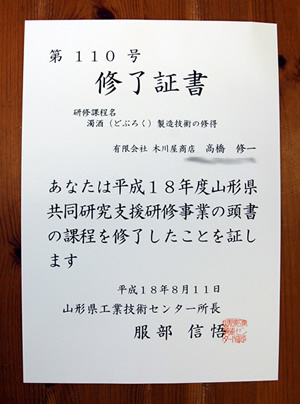 第 110 号
修了証書
研修課程名
濁酒（どぶろく）製造技術の修得
有限会社 木川屋商店 高橋 修一
あなたは平成18年度山形県
共同研究支援研修事業の頭書
の課程を修了したことを証し
ます
平成18年8月11日
山形県工業技術センター所長
服部 信悟